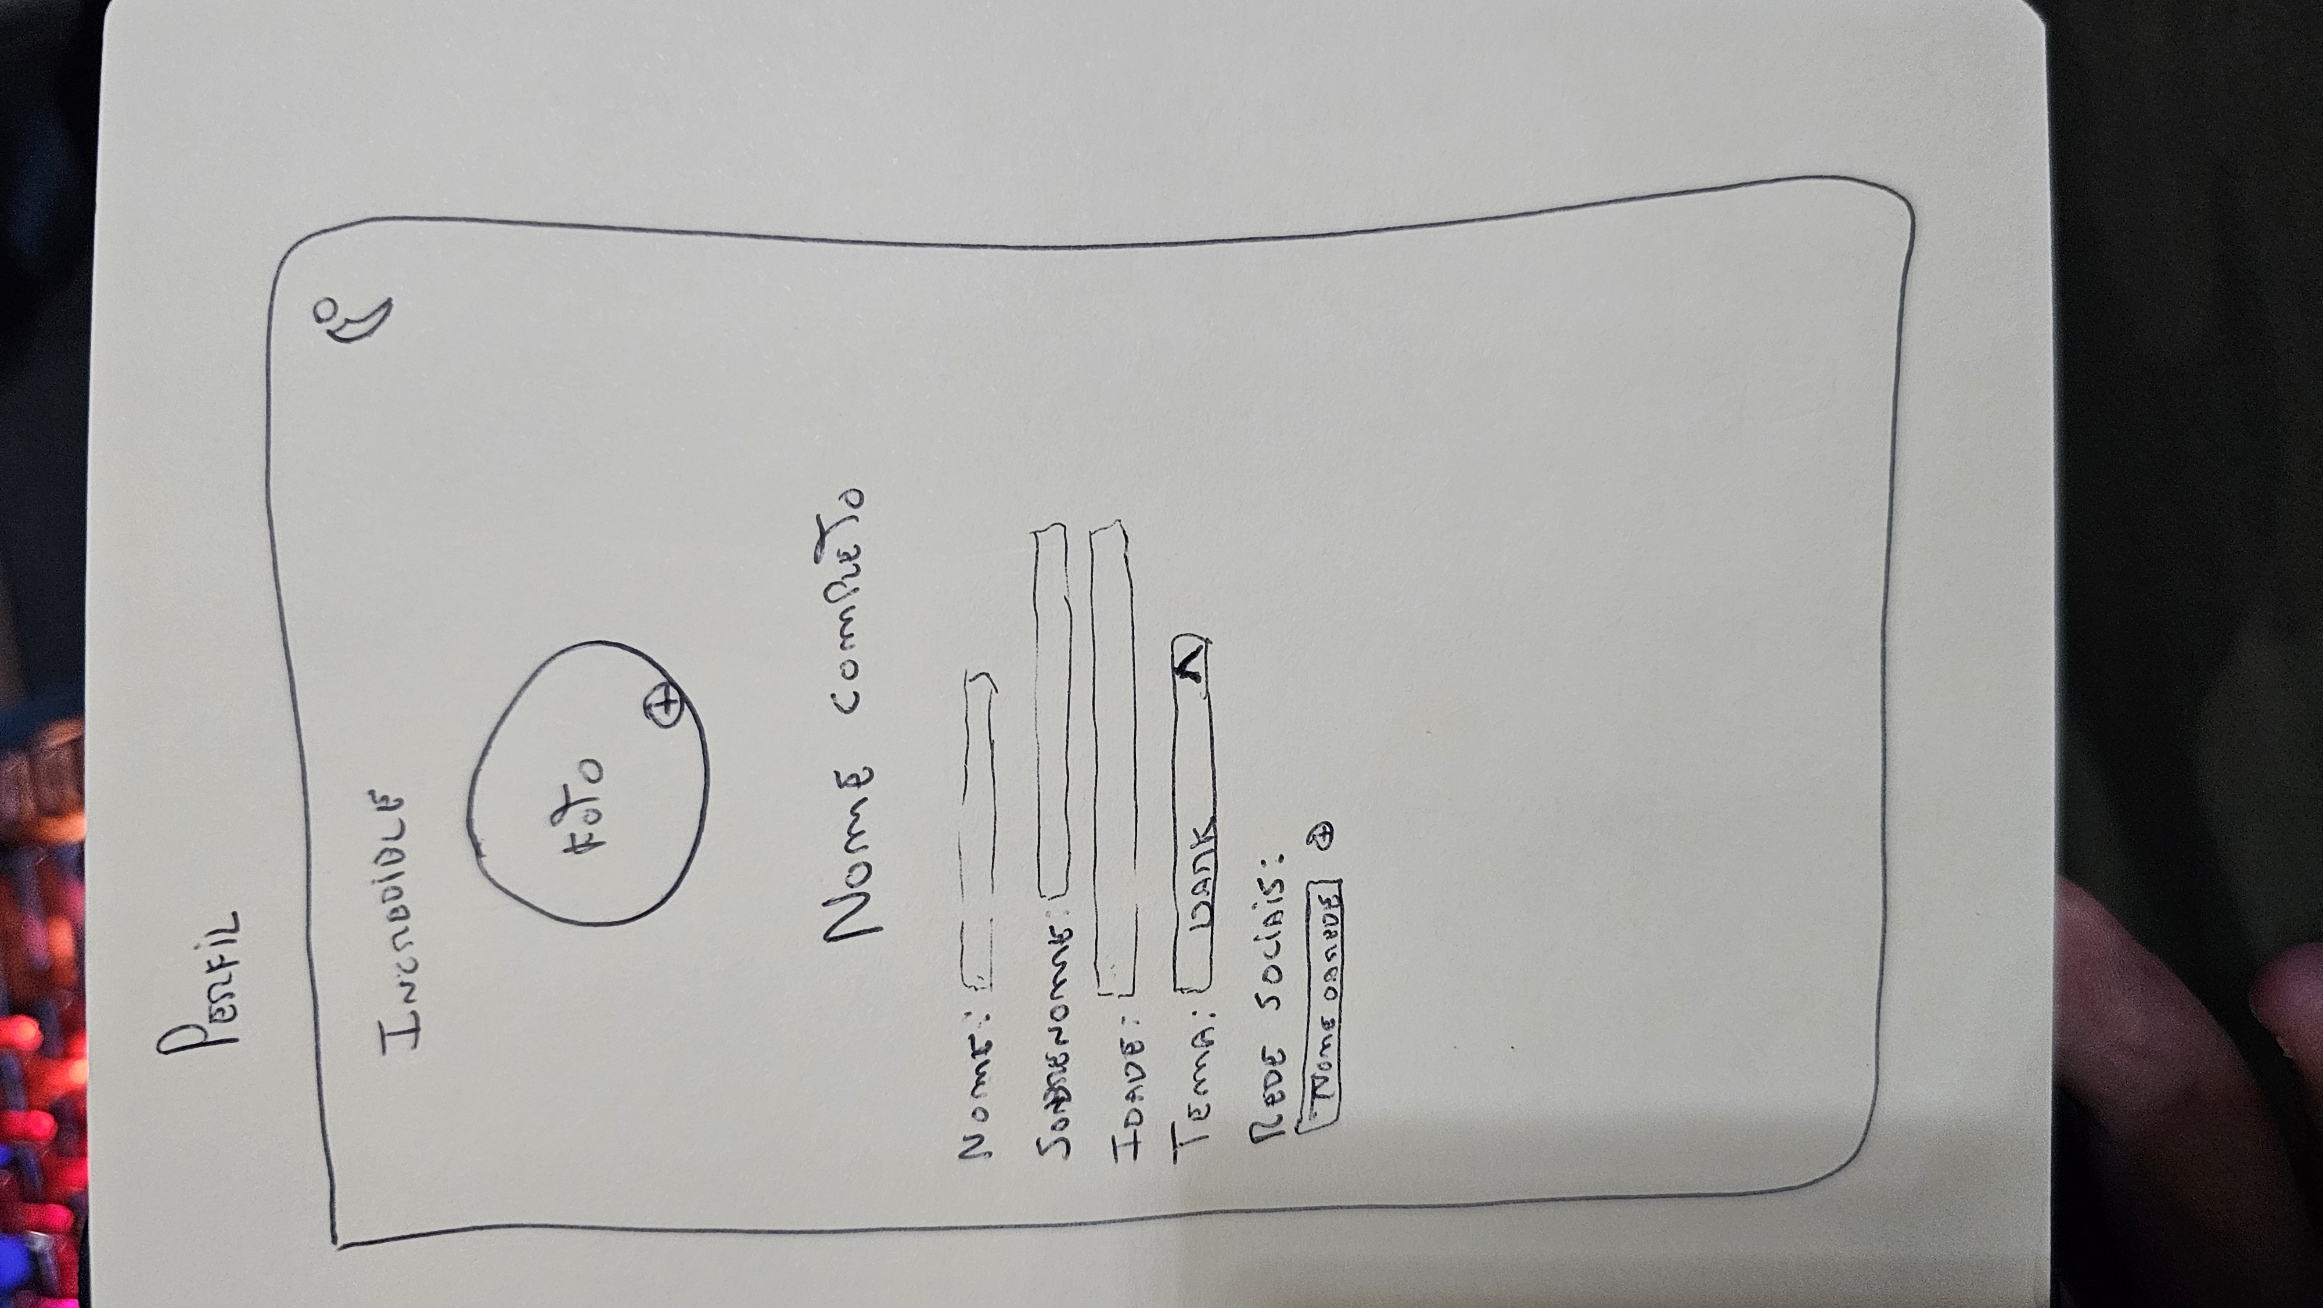 PERFIL
INCREDIBLE
FOTO
NOME COMPLETO
NOME:
SOBRENOME:
IDADE:
TEMA: DARK
REDE SOCIAIS:
NOME DA REDE